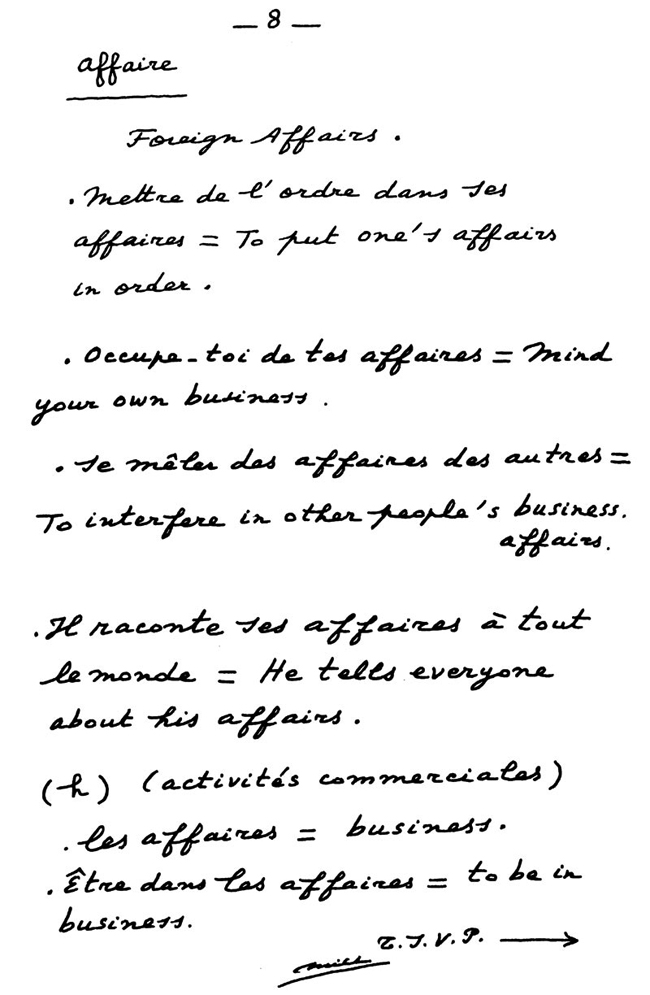 — 8 —
affaire
Foreign Affairs.
. Mettre de l'ordre dans ses
affaires = To put one's affairs
in order.
. Occupe-toi de tes affaires = Mind
your own business.
. Se mêler des affaires des autres =
To interfere in other people's business.
affairs.
. Il raconte ses affaires à tout
le monde = He tells everyone
about his affairs.
(h) (activités commerciales)
. les affaires = business.
. Être dans les affaires = to be in
business.
T.S.V.P. →